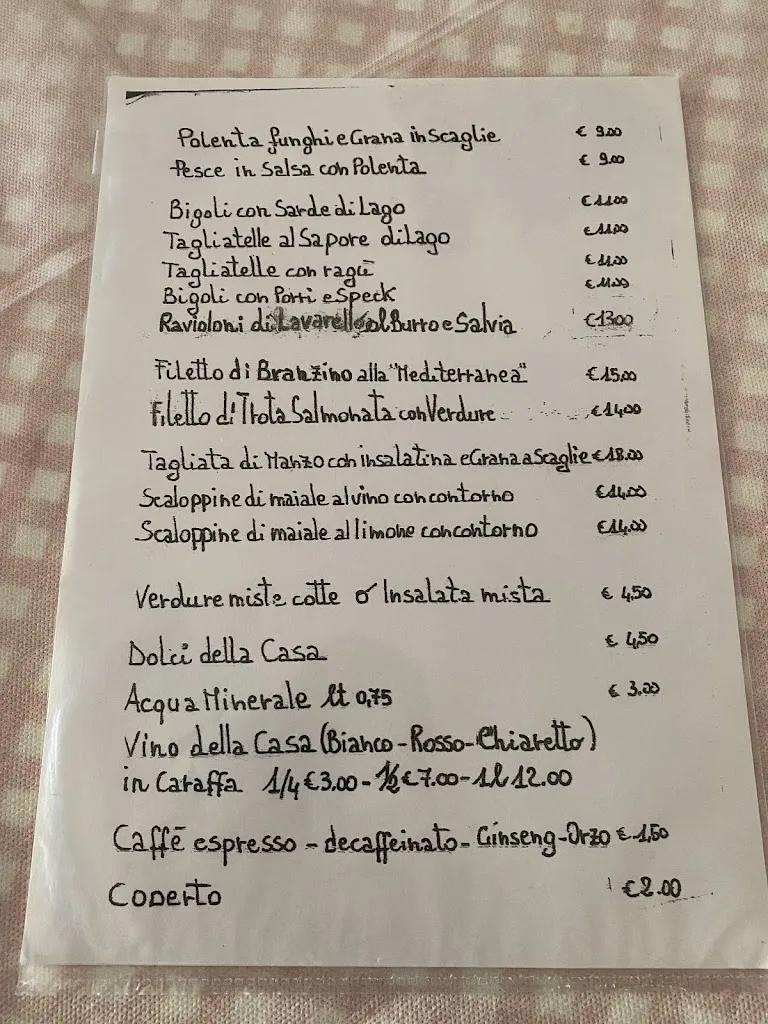 Polenta funghi e Grana in Scaglie € 9.00
Pesce in Salsa con Polenta € 9.00
Bigoli con Sarde di Lago € 11.00
Tagliatelle al Sapore di Lago € 11.00
Tagliatelle con ragù € 11.00
Bigoli con Porri e Speck € 11.00
Ravioloni di Lavarello al Burro e Salvia € 13.00
Filetto di Branzino alla "Mediterranea" € 15,00
Filetto di Trota Salmonata con Verdure € 14,00
Tagliata di Manzo con insalatina e Grana a Scaglie € 18.00
Scaloppine di maiale al vino con contorno € 14,00
Scaloppine di maiale al limone con contorno € 14,00
Verdure miste cotte o Insalata mista € 4,50
Dolci della Casa € 4,50
Acqua Minerale lt 0,75 € 3.00
Vino della Casa (Bianco - Rosso - Chiaretto)
in Caraffa 1/4 € 3.00 - ½ € 7.00 - 1 l 12.00
Caffè espresso - decaffeinato - Ginseng - Orzo € 1,50
Coperto € 2.00